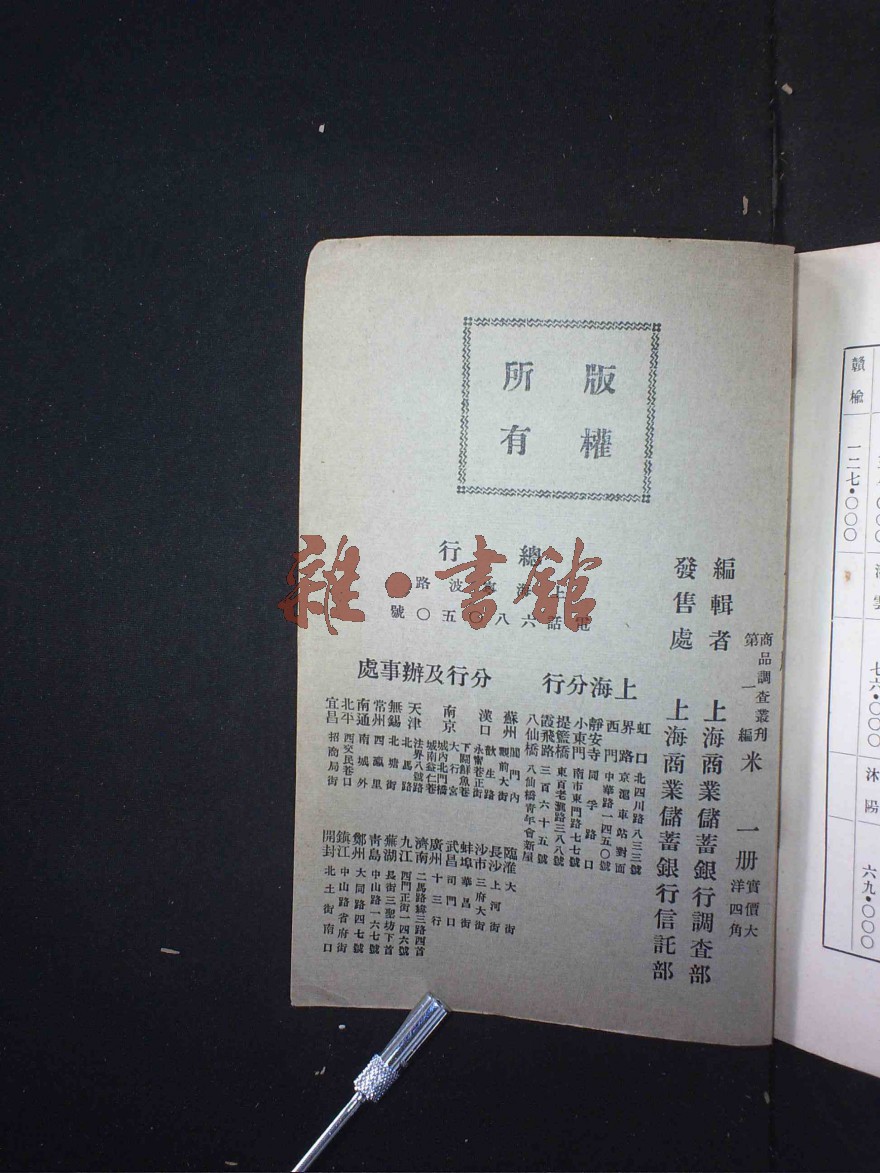 版權
所有
商品調查叢刊
第一編
米 一册
實價大
洋四角
編輯者 上海商業儲蓄銀行調查部
發售處 上海商業儲蓄銀行信託部
總行
路
電話六八〇五〇號
上海分行
虹口 北四川路八三三號
界路 京滬車站對面
西門 中華路一四五〇號
靜安寺 同孚路口
小東門 南市東門路七七號
提籃橋 東百老滙路三八八號
霞飛路 三百六十五號
八仙橋 八仙橋青年會新屋
分行及辦事處
蘇州 閶門內
觀前大街
漢口 歆生路
永甯巷正街
南京 下關鮮魚巷
大行宮
城內北門橋
城南益仁巷
天津 法界八號路
北馬路
無錫 北塘街
常州 西瀛里
南通 南城外
北平 西交民巷口
宜昌 招商局街
臨淮 大街
長沙 上河街
沙市 三府大街
蚌埠 華昌街
武昌 司門口
廣州 十三行
濟南 二馬路緯三路西首
九江 西門正街一四六號
蕪湖 長街三聖坊下首
青島 中山路一六七號
鄭州 大同路四七號
鎮江 中山路省府街
開封 北土街南口
雜·書館
七六·〇〇〇
沭陽
六九·〇〇〇
贛榆
一二七·〇〇〇